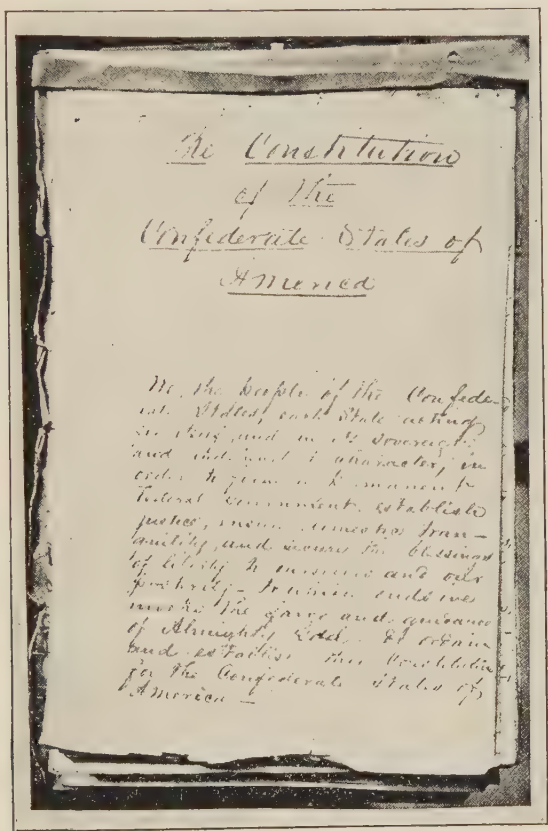 The Constitution
of the
Confederate States of
America
We, the people of the Confede-
rate States, each State acting
in itself, and in its sovereign
and independent character, in
order to form a permanent
Federal Government, establish
justice, insure domestic tran-
quility, and secure the blessings
of liberty to ourselves and our
posterity - to which ends we
invoke the favor and guidance
of Almighty God - do ordain
and establish this Constitution
for the Confederate States of
America -